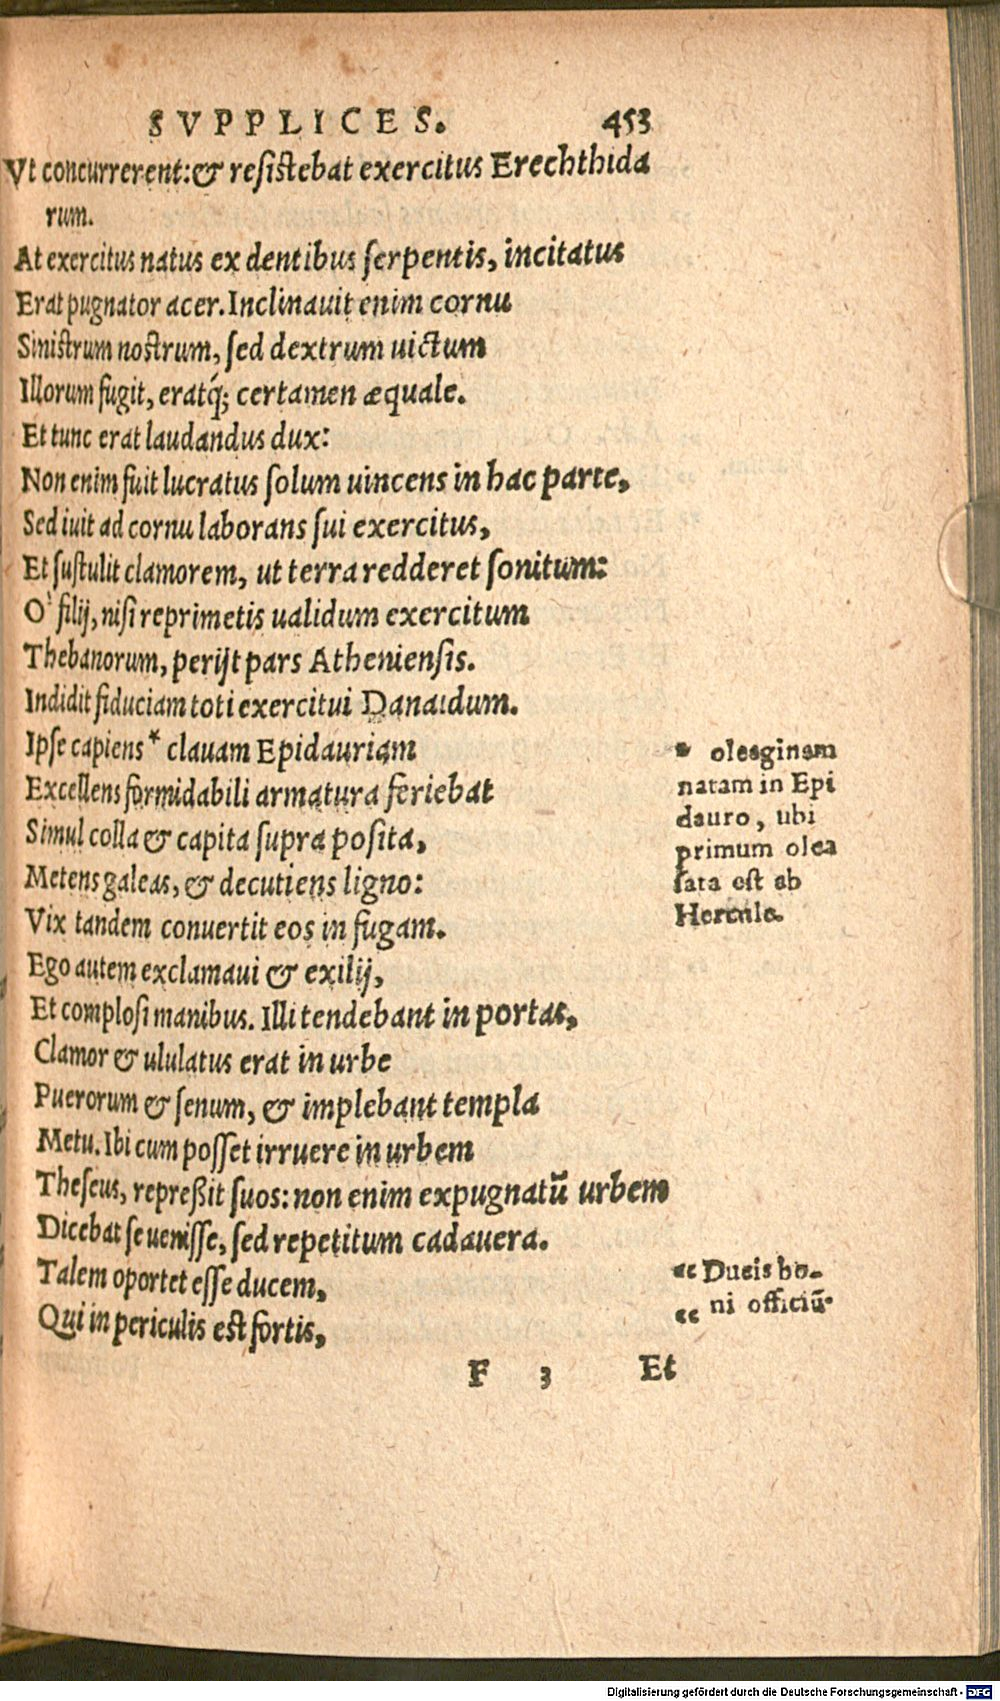 SVPPLICES. 453
Vt concurrerent: & resistebat exercitus Erechthida
rum.
At exercitus natus ex dentibus serpentis, incitatus
Erat pugnator acer. Inclinauit enim cornu
Sinistrum nostrum, sed dextrum uictum
Illorum fugit, eratq́; certamen æquale.
Et tunc erat laudandus dux:
Non enim fuit lucratus solum uincens in hac parte,
Sed iuit ad cornu laborans sui exercitus,
Et sustulit clamorem, ut terra redderet sonitum:
O' filij, nisi reprimetis ualidum exercitum
Thebanorum, perijt pars Atheniensis.
Indidit fiduciam toti exercitui Danaidum.
Ipse capiens * clauam Epidauriam
Excellens formidabili armatura feriebat
Simul colla & capita supra posita,
Metens galeas, & decutiens ligno:
Vix tandem conuertit eos in fugam.
Ego autem exclamaui & exilij,
Et complosi manibus. Illi tendebant in portas,
Clamor & ululatus erat in urbe
Puerorum & senum, & implebant templa
Metu. Ibi cum posset irruere in urbem
Theseus, repreßit suos: non enim expugnatū urbem
Dicebat se uenisse, sed repetitum cadauera.
Talem oportet esse ducem,
Qui in periculis est fortis,
* oleaginam
natam in Epi
dauro, ubi
primum olea
sata est ab
Hercule.
“ Ducis bo-
“ ni officiū.
F 3 Et
Digitalisierung gefördert durch die Deutsche Forschungsgemeinschaft - DFG